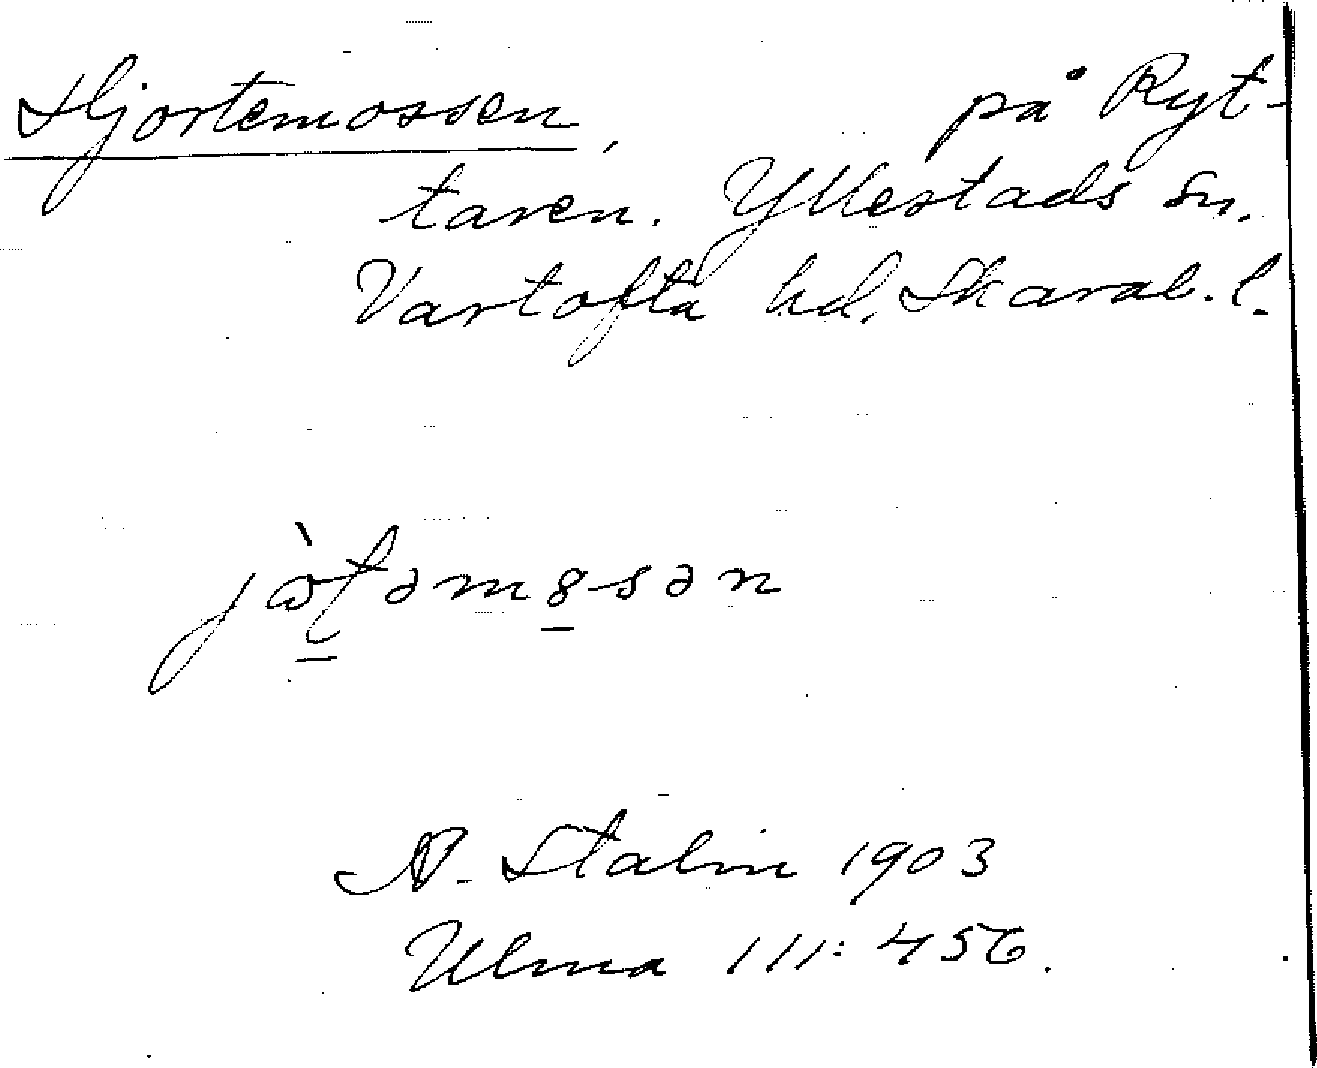 Hjortemossen, på Ryt-
taren. Yllestads sn.
Vartofta hd. Skarab. l.
jòʈəm8sən
N. Stalin 1903
Ulma 111:456.